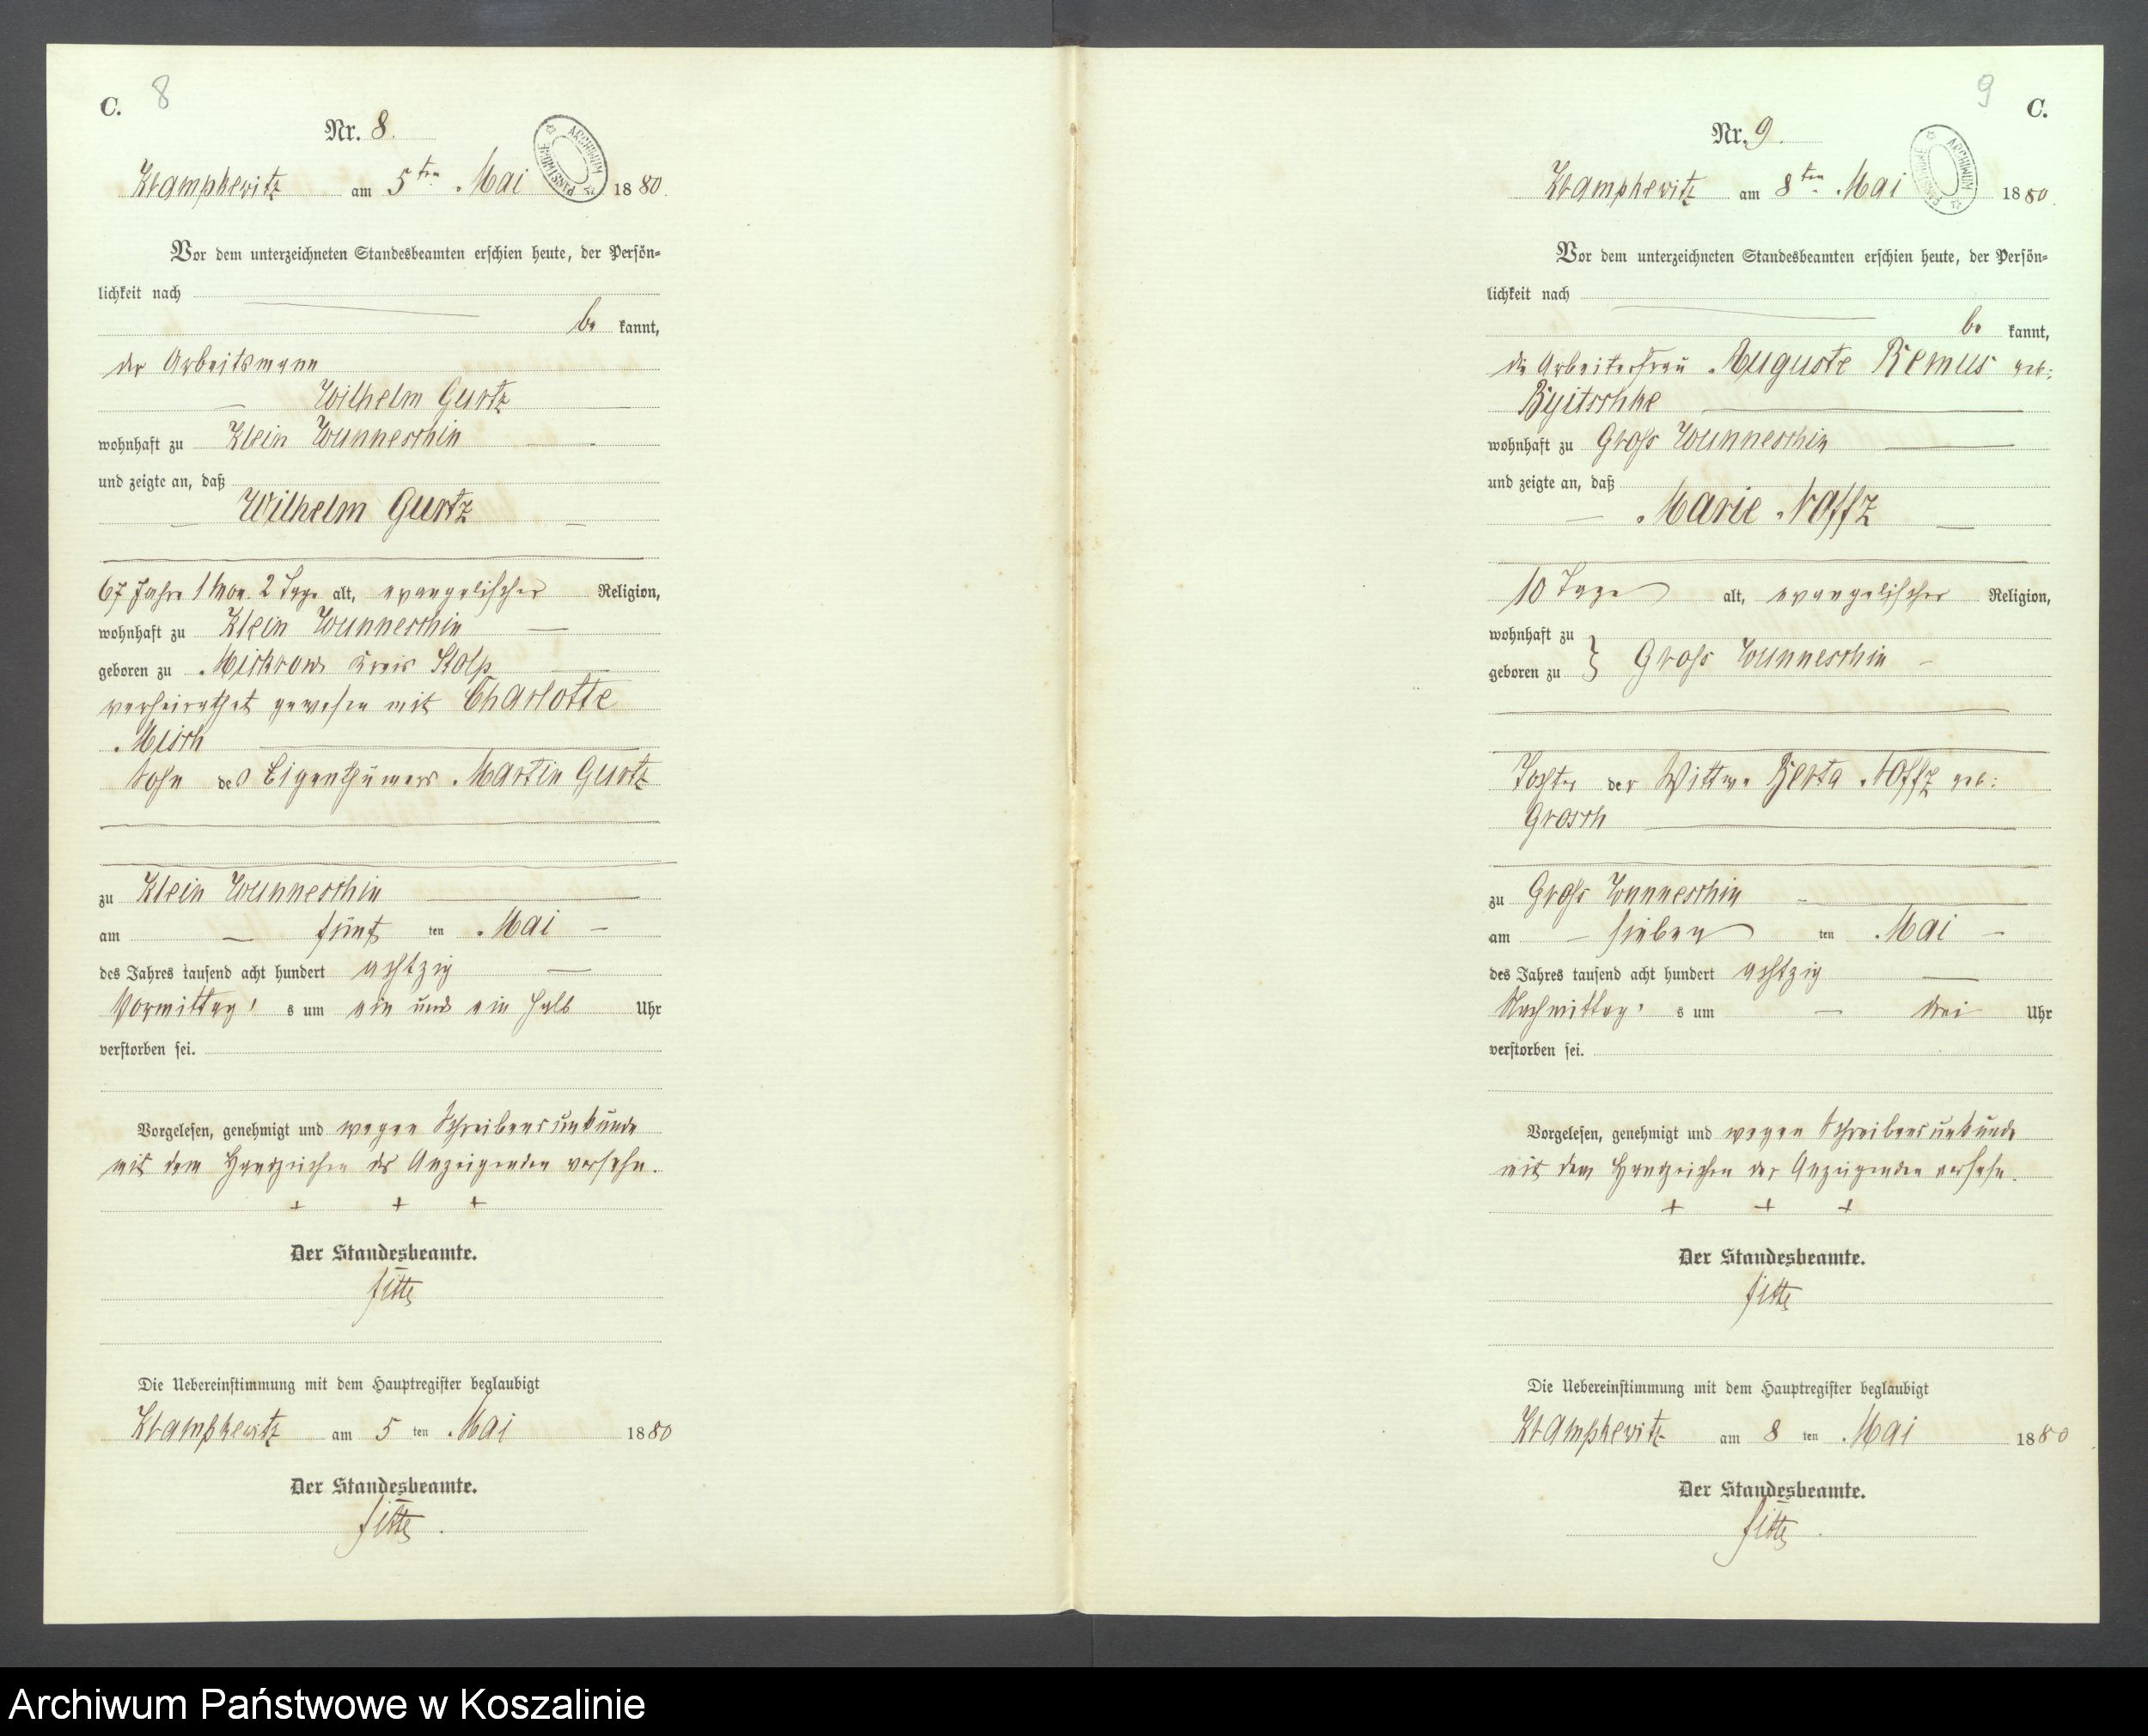 C. 8
Nr. 8.
ARCHIWUM PAŃSTWOWE
Krampkewitz am 5ten Mai 1880.
Vor dem unterzeichneten Standesbeamten erschien heute, der Persön-
lichkeit nach
be kannt,
der Arbeitsmann
Wilhelm Gurtz
wohnhaft zu Klein Wunneschin
und zeigte an, daß
Wilhelm Gurtz
67 Jahre 1 Mon. 2 Tage alt, evangelischer Religion,
wohnhaft zu Klein Wunneschin
geboren zu Mickrow Kreis Stolp
verheirathet gewesen mit Charlotte
Misch
Sohn des Eigenthümers Martin Gurtz
zu Klein Wunneschin
am fünf ten Mai
des Jahres tausend acht hundert achtzig
Vormittag's um ein und ein halb Uhr
verstorben sei.
Vorgelesen, genehmigt und wegen Schreibensunkunde
mit dem Handzeichen des Anzeigenden versehn.
+ + +
Der Standesbeamte.
Die Uebereinstimmung mit dem Hauptregister beglaubigt
Krampkewitz am 5 ten Mai 1880
Der Standesbeamte.
9 C.
Nr. 9.
ARCHIWUM PAŃSTWOWE
Krampkewitz am 8ten Mai 1880.
Vor dem unterzeichneten Standesbeamten erschien heute, der Persön-
lichkeit nach
be kannt,
die Arbeiterfrau Auguste Remus geb:
wohnhaft zu Groß Wunneschin
und zeigte an, daß
Marie Noffz
10 Tage alt, evangelischer Religion,
wohnhaft zu
geboren zu } Groß Wunneschin
Tochter der Wittwe Berta Noffz geb:
Grosch
zu Groß Wunneschin
am sieben ten Mai
des Jahres tausend acht hundert achtzig
Nachmittag's um drei Uhr
verstorben sei.
Vorgelesen, genehmigt und wegen Schreibensunkunde
mit dem Handzeichen der Anzeigenden versehn.
+ + +
Der Standesbeamte.
Die Uebereinstimmung mit dem Hauptregister beglaubigt
Krampkewitz am 8 ten Mai 1880
Der Standesbeamte.
Archiwum Państwowe w Koszalinie